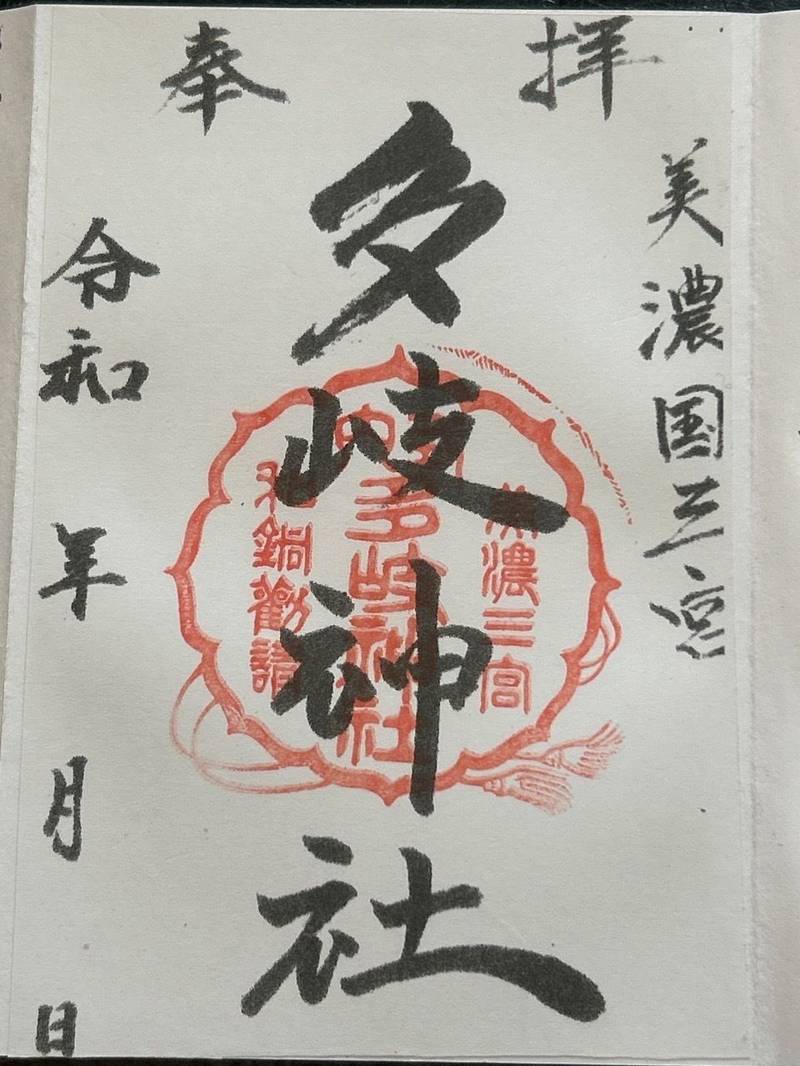 奉拝
美濃国三宮
多岐神社
令和 年 月 日
美濃三宮
多岐神社
和銅勸請